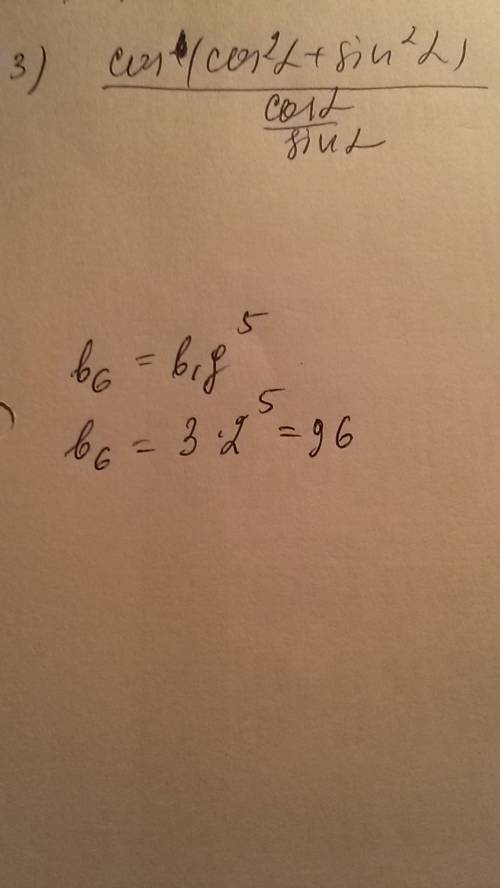 3) cos (cos²α + sin²α)
cosα
sinα
b₆ = b₁q⁵
b₆ = 3 · 2⁵ = 96